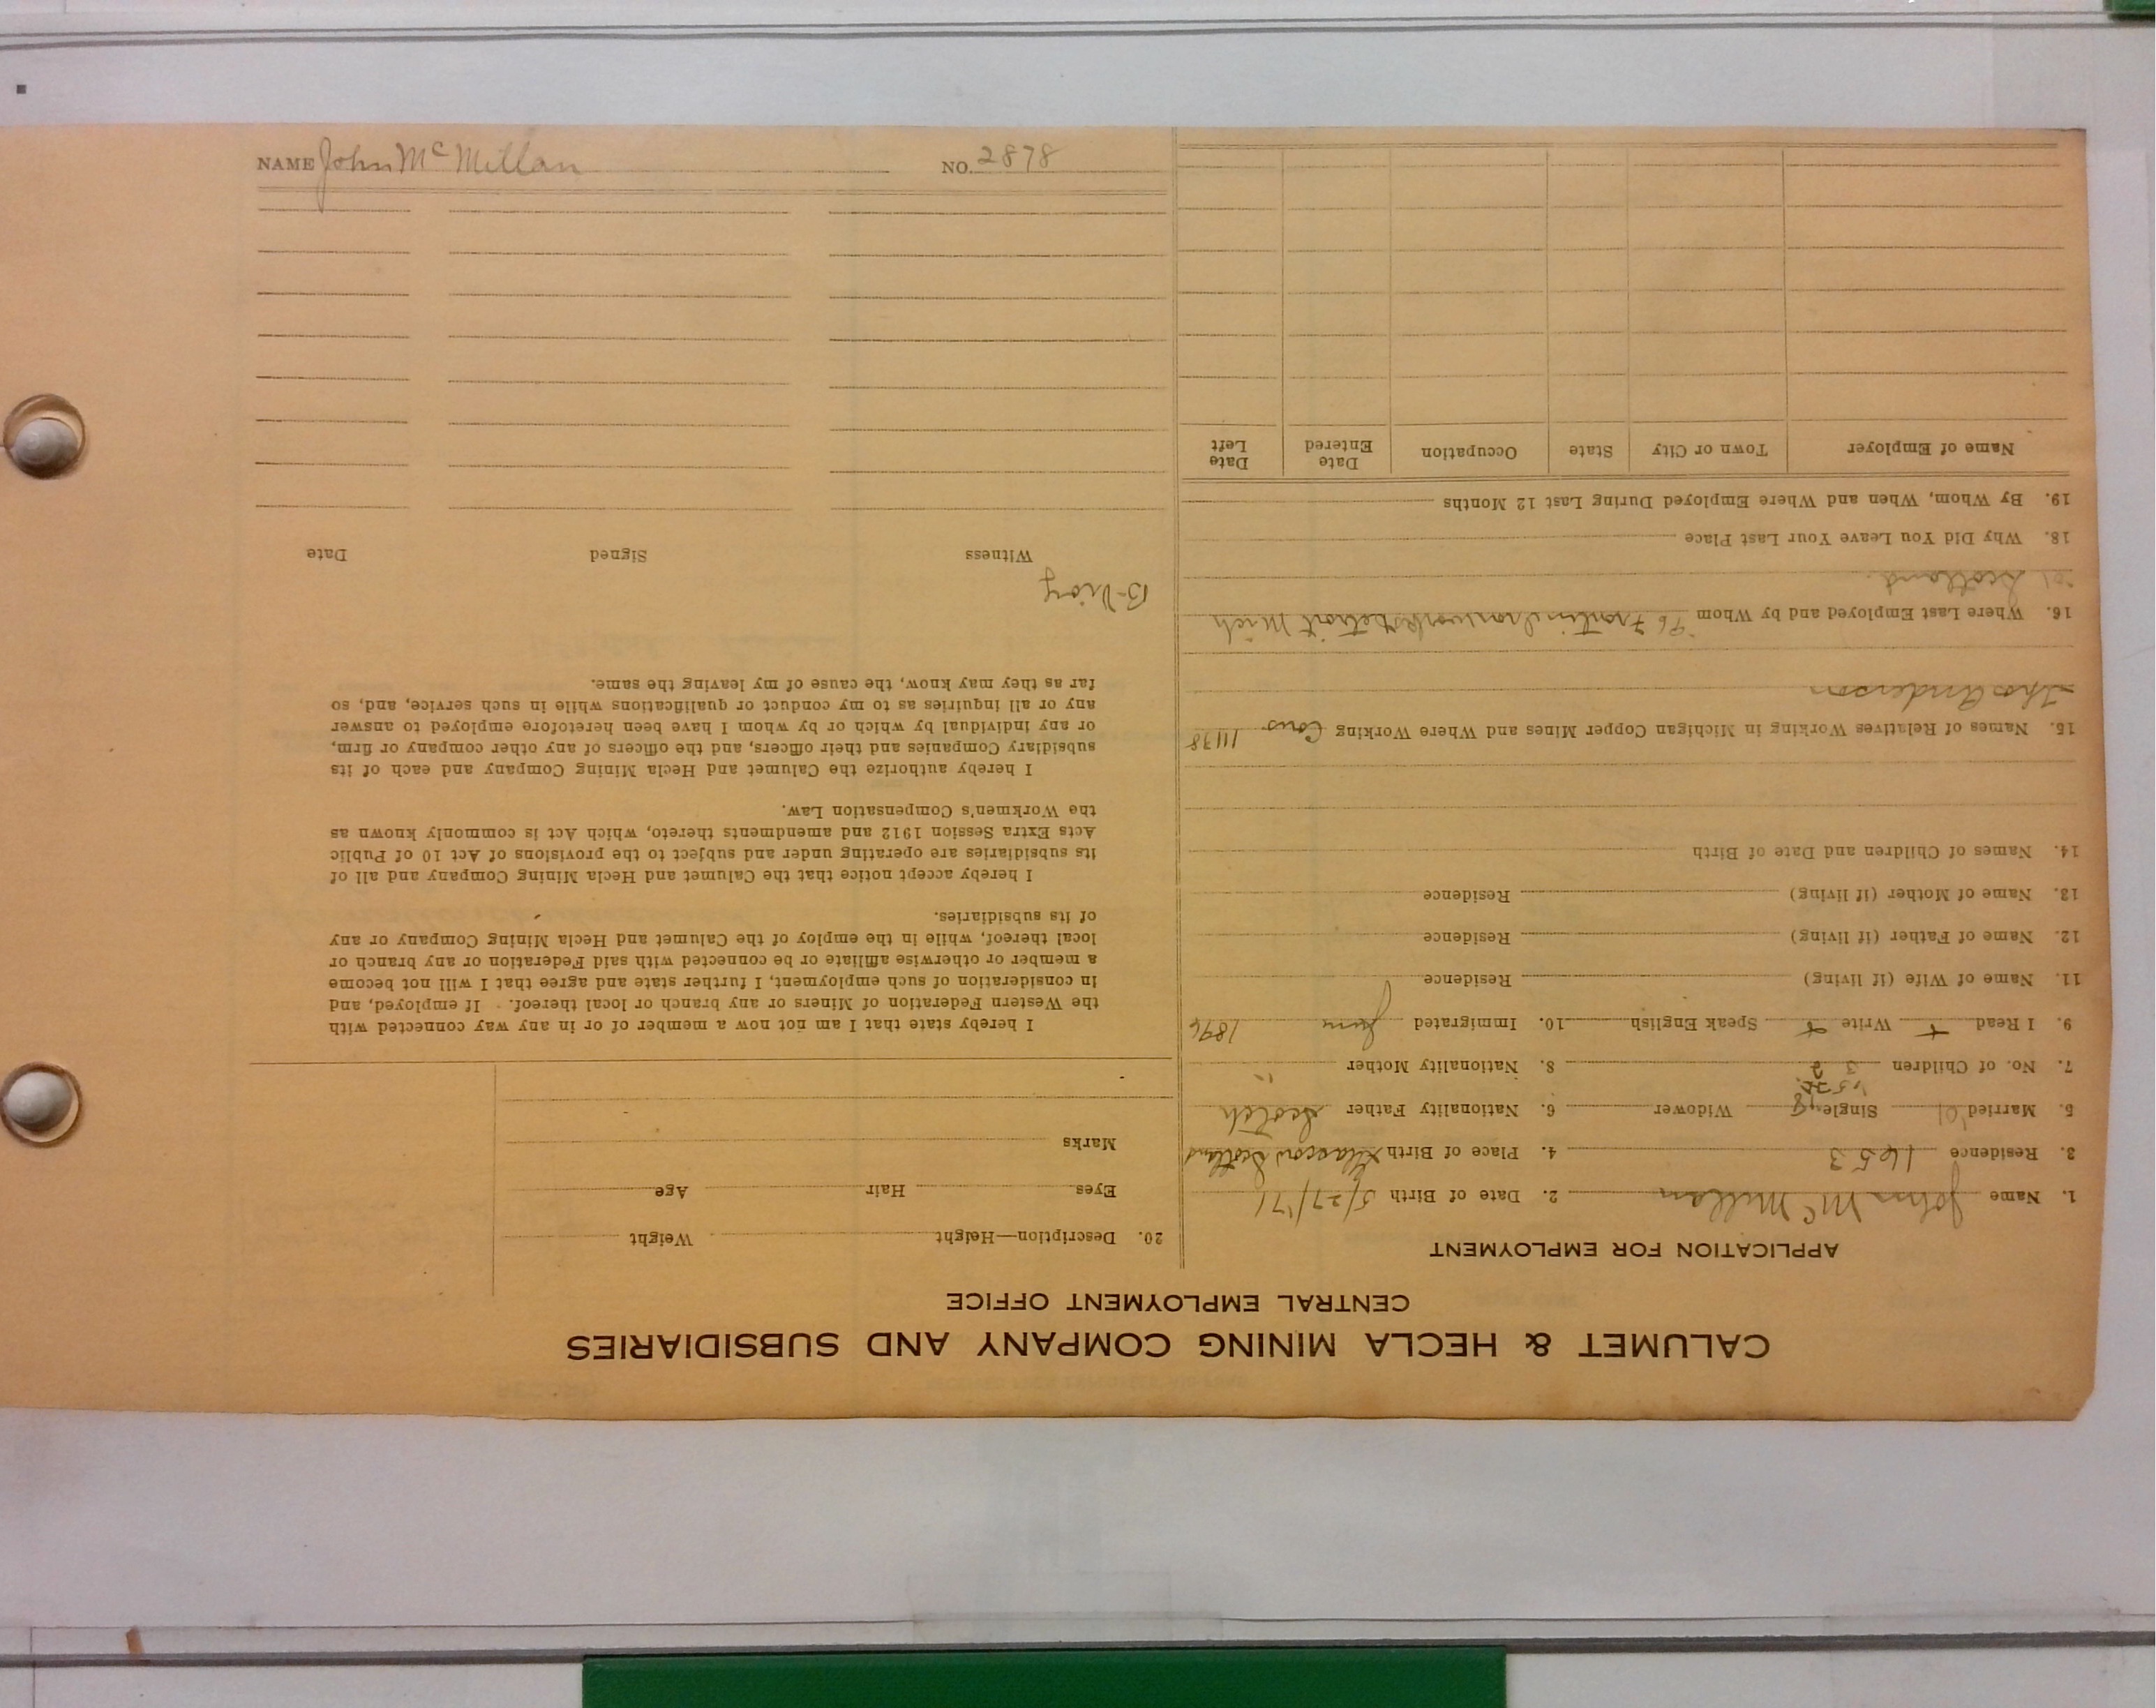 CALUMET & HECLA MINING COMPANY AND SUBSIDIARIES
CENTRAL EMPLOYMENT OFFICE
APPLICATION FOR EMPLOYMENT
1. Name John Mc Millan 2. Date of Birth 5/27/'71
3. Residence 1653 4. Place of Birth Glascow Scotland
5. Married '01 Single Widower 6. Nationality Father Scotch
7. No. of Children 3 8. Nationality Mother "
9. I Read + Write + Speak English 10. Immigrated June 1896
11. Name of Wife (if living) Residence
12. Name of Father (if living) Residence
13. Name of Mother (if living) Residence
14. Names of Children and Date of Birth
15. Names of Relatives Working in Michigan Copper Mines and Where Working Cous 11138
Thos Anderson
16. Where Last Employed and by Whom '96 Ironworks Detroit Mich
'01 Scotland.
18. Why Did You Leave Your Last Place
19. By Whom, When and Where Employed During Last 12 Months
Name of Employer Town or City State Occupation Date Entered Date Left
20. Description—Height Weight
Eyes Hair Age
Marks
I hereby state that I am not now a member of or in any way connected with
the Western Federation of Miners or any branch or local thereof. If employed, and
in consideration of such employment, I further state and agree that I will not become
a member or otherwise affiliate or be connected with said Federation or any branch or
local thereof, while in the employ of the Calumet and Hecla Mining Company or any
of its subsidiaries.
I hereby accept notice that the Calumet and Hecla Mining Company and all of
its subsidiaries are operating under and subject to the provisions of Act 10 of Public
Acts Extra Session 1912 and amendments thereto, which Act is commonly known as
the Workmen's Compensation Law.
I hereby authorize the Calumet and Hecla Mining Company and each of its
subsidiary Companies and their officers, and the officers of any other company or firm,
or any individual by which or by whom I have been heretofore employed to answer
any or all inquiries as to my conduct or qualifications while in such service, and, so
far as they may know, the cause of my leaving the same.
Witness Signed Date
NAME John Mc Millan NO. 2878